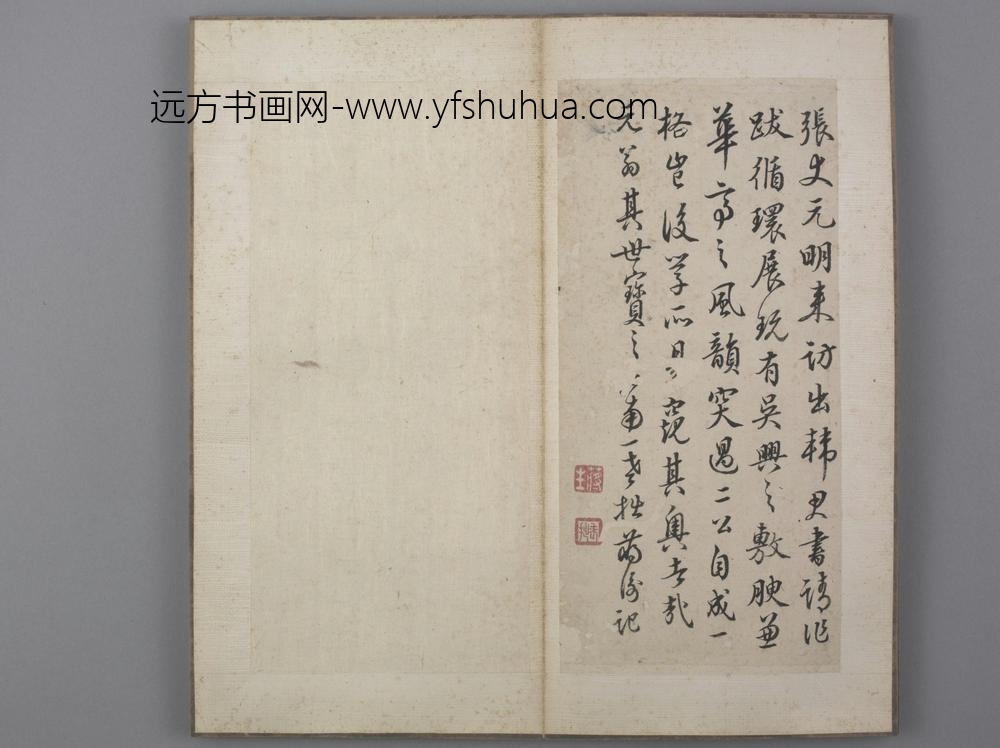 远方书画网-www.yfshuhua.com
張史元明来訪出韩君書請作
跋循環展玩有吳興之敷腴兼
華亭之風韻突過二公自成一
格豈後学所日〻窺其奧者哉
元翁其世寶之
拙
記